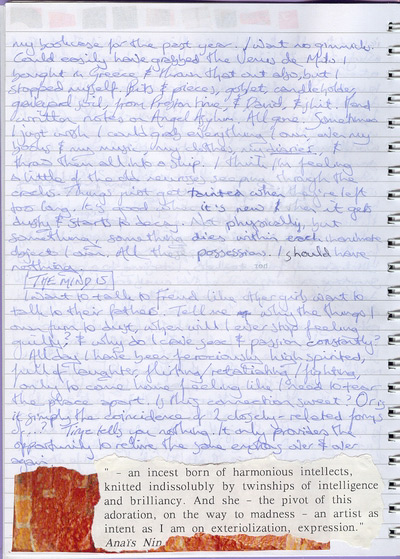 my bookcase for the past year. I want no gimmicks.
Could easily have grabbed the Venus de Milo I
bought in Greece & thrown that out also, but I
stopped myself. Bits & pieces, goblet, candleholder,
from & David, & shit. Hand
written notes on Angel Asylum. All gone. Sometimes
I just wish I could grab everything I own, even my
books & my music, my clothes, my diaries, &
throw them all into a skip. I think I'm feeling
a little of the old seeping through the
cracks. Things just get tainted when they're left
too long. It's good when it's new & then it gets
dusty & starts to decay. Not physically, but
something, something dies within each inanimate
object I own. All this possession. I should have
nothing.
THE MIND IS
I want to talk to Freud like other girls want to
talk to their father. Tell me why the things I
own turn to dust, when will I ever stop feeling
guilty? & why do I crave sex & passion constantly?
All day I have been ferociously high spirited,
full of laughter, flirting/ /fighting,
only to come home feeling like I need to tear
the place apart. Is this connection sweet? Or is
it simply the coincidence of 2 closely-related forms
of...? Time tells you nothing. It only provides the
opportunity to relive the same over & over
again.
" – an incest born of harmonious intellects,
knitted indissolubly by twinships of intelligence
and brilliancy. And she – the pivot of this
adoration, on the way to madness – an artist as
intent as I am on exteriolization, expression."
Anaïs Nin